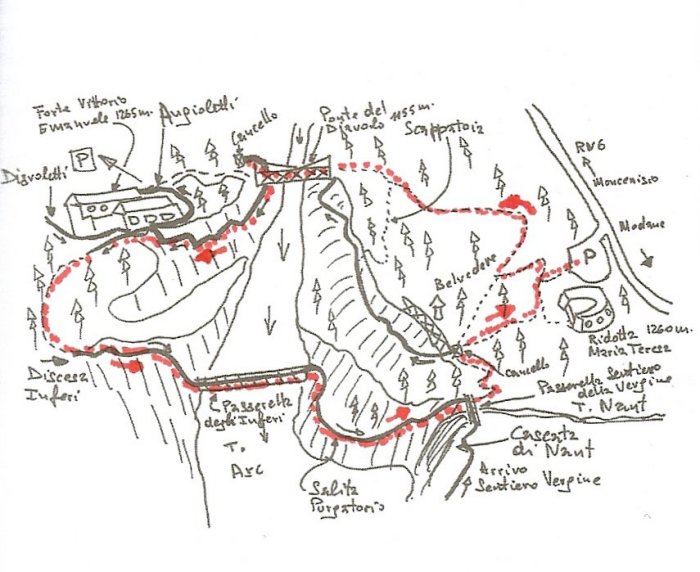 Forte Vittorio
Emanuele 1265m.
Angioletti
P
Diavoletti
Cancello
Ponte del
Diavolo
1155m.
Scappatoia
RN6
Moncenisio
Modane
P
Belvedere
Ridotta 1260m.
Maria Teresa
Cancello
Discesa
Inferi
Passerella
degli Inferi
T.
Arc
Salita
Purgatorio
Passerella Sentiero
della Vergine
T. Nant
Cascata
di Nant
Arrivo
Sentiero Vergine